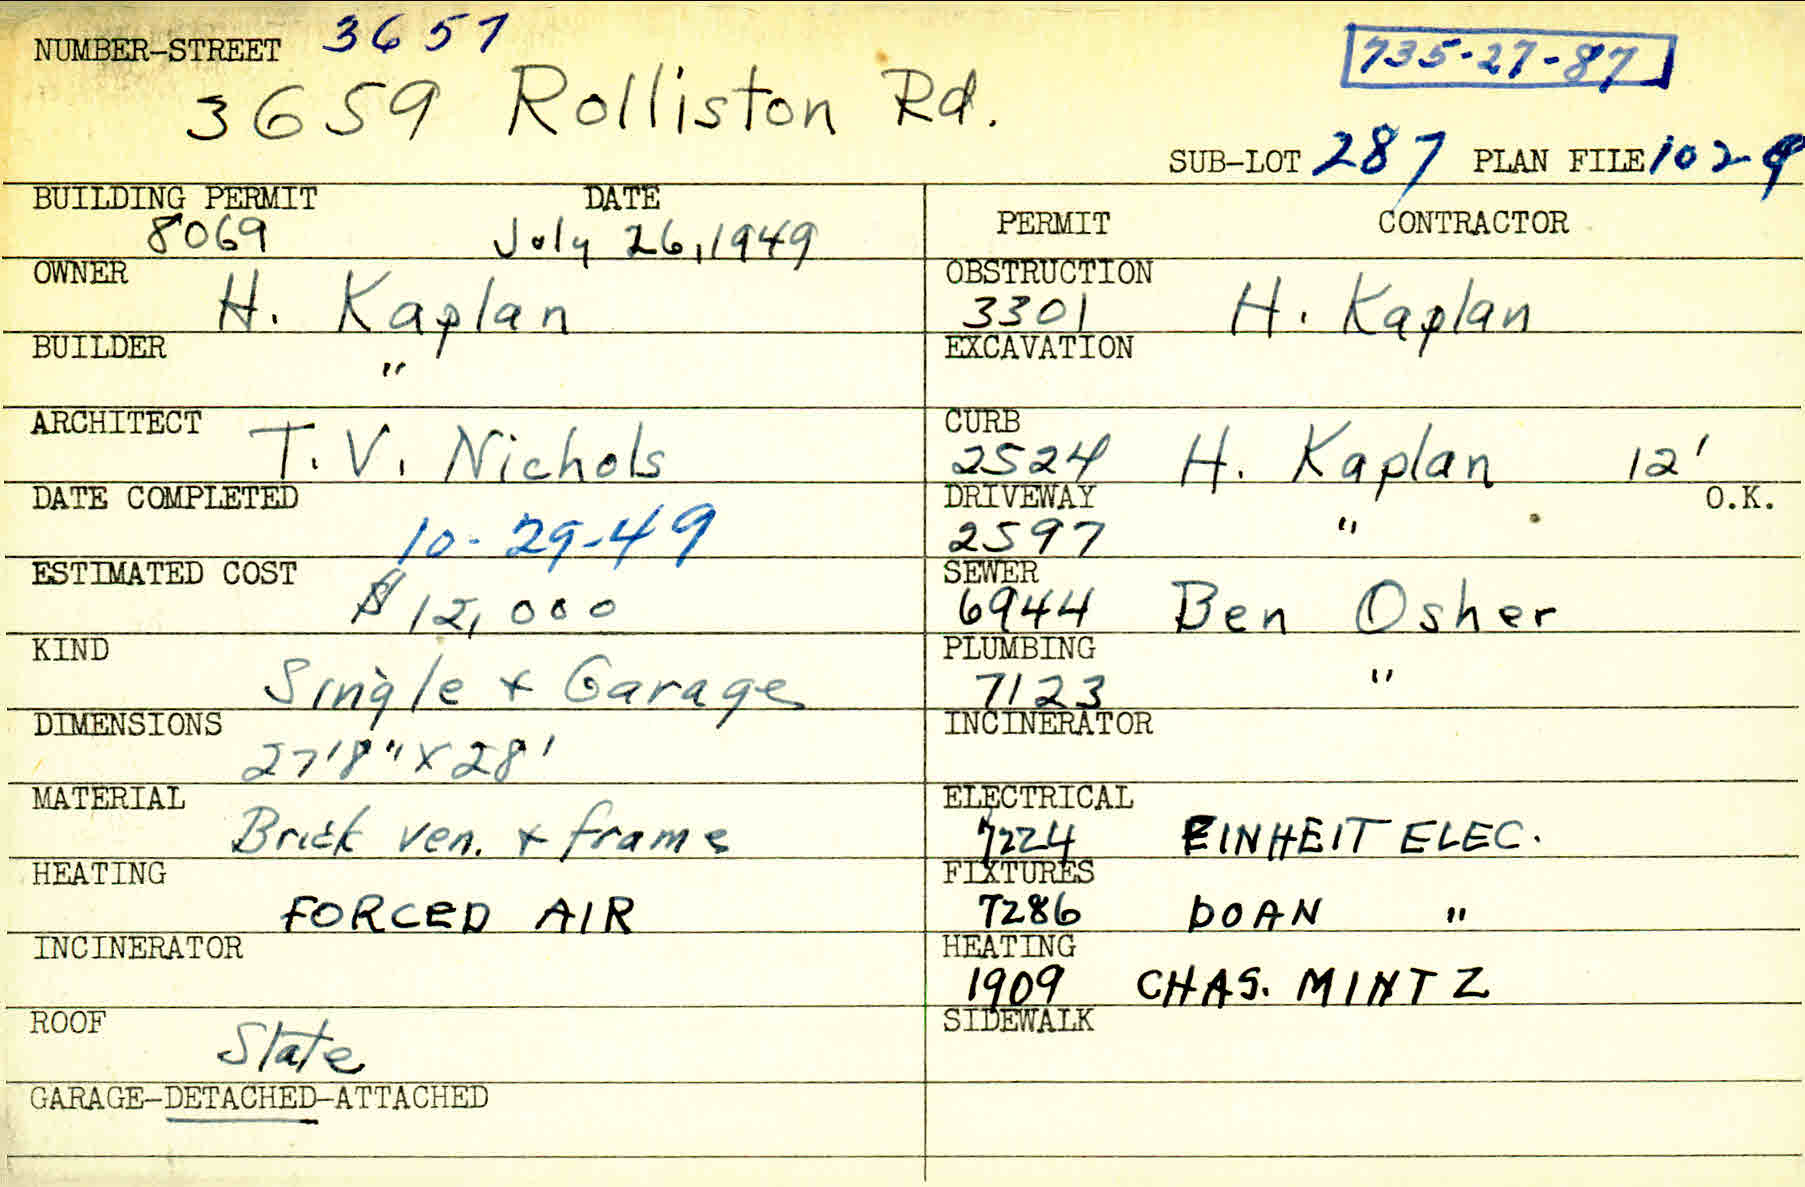 NUMBER-STREET 3657
735-27-87
3659 Rolliston Rd.
SUB-LOT 287 PLAN FILE 102-9
BUILDING PERMIT DATE
8069 July 26, 1949
PERMIT CONTRACTOR
OWNER
H. Kaplan
OBSTRUCTION
3301 H. Kaplan
BUILDER
"
EXCAVATION
ARCHITECT
T. V. Nichols
CURB
2524 H. Kaplan 12'
DATE COMPLETED
10-29-49
DRIVEWAY O.K.
2597 "
ESTIMATED COST
$12,000
SEWER
6944 Ben Osher
KIND
Single + Garage
PLUMBING
7123 "
DIMENSIONS
27'8" X 28'
INCINERATOR
MATERIAL
Brick ven. + frame
ELECTRICAL
7224 EINHEIT ELEC.
HEATING
FORCED AIR
FIXTURES
7286 DOAN "
INCINERATOR
HEATING
1909 CHAS. MINTZ
ROOF
Slate
SIDEWALK
GARAGE-DETACHED-ATTACHED